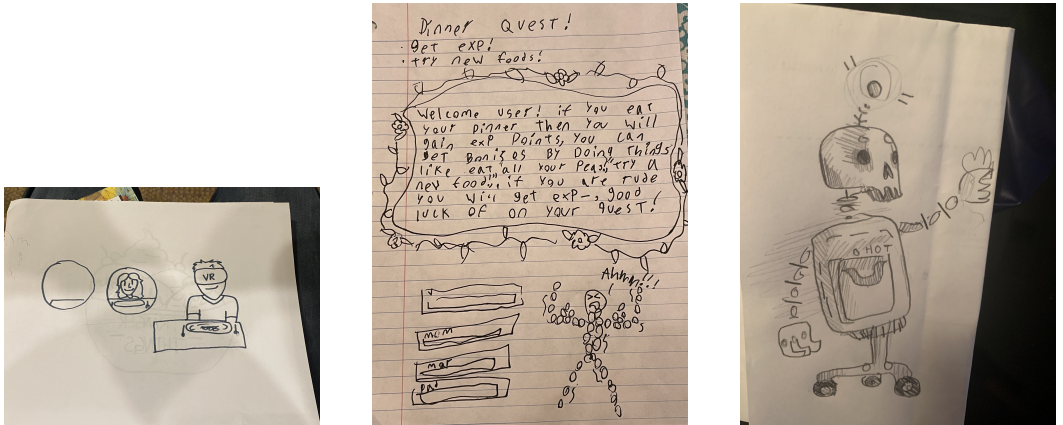 VR
Dinner Quest!
· get exp!
· try new foods!
Welcome user! if you eat
your Dinner then you will
gain exp Points, you can
get Bonises By Doing things
like eat "all your Peas", "try a
new food", if you are rude
you will get exp-, good
luck of on your quest!
Ahhh!!!
mom
Dad
HOT